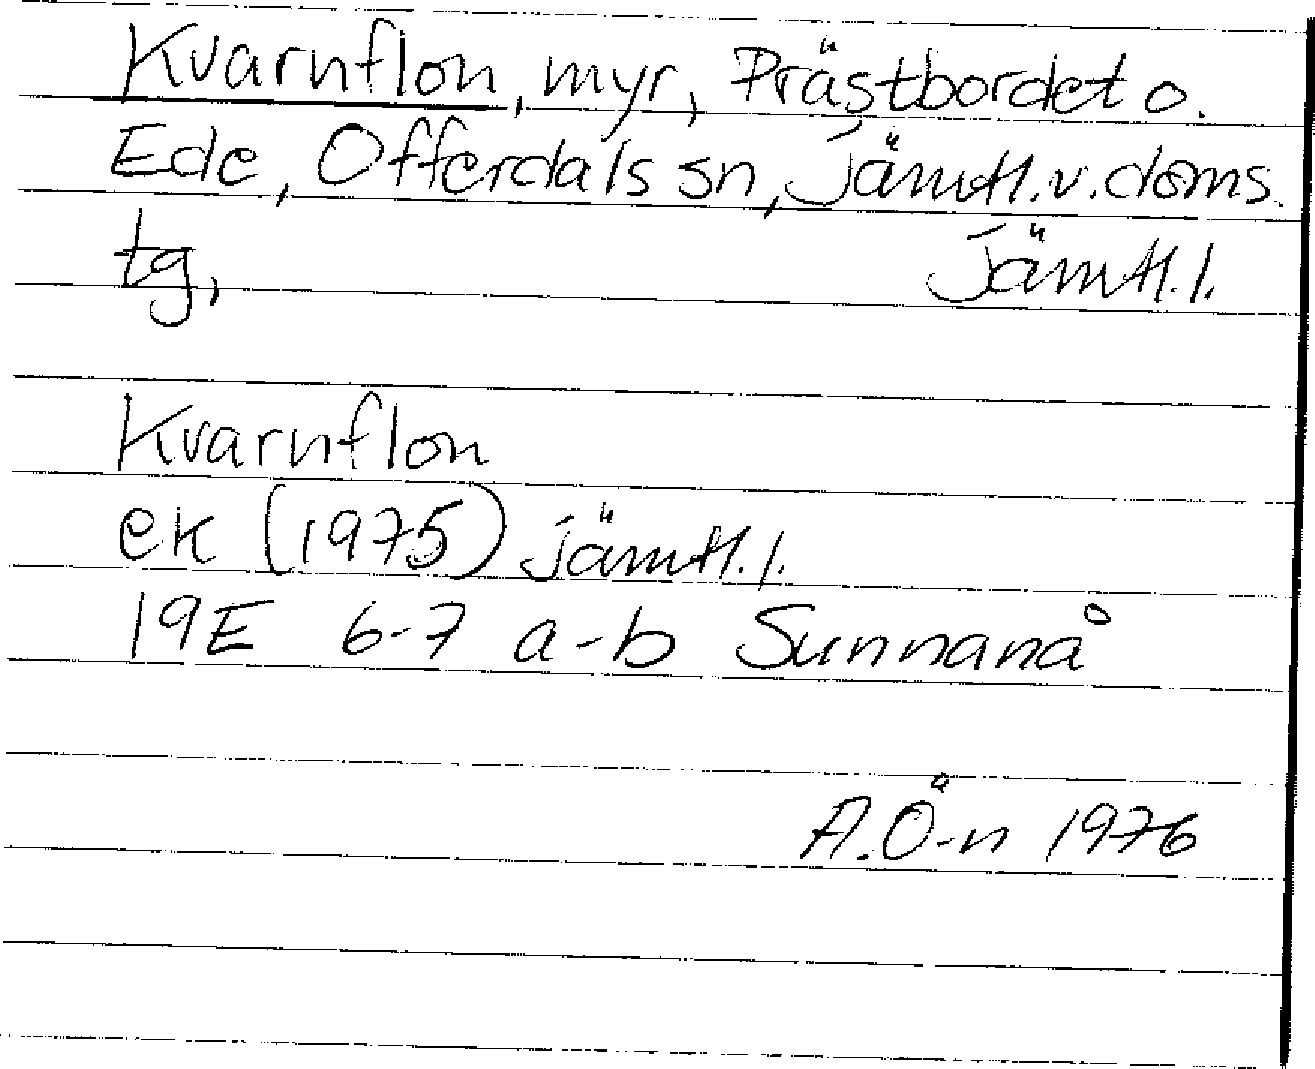 Kvarnflon, myr, Prästbordet o.
Ede, Offerdals sn, Jämtl. v. doms.
tg, Jämtl. l.
Kvarnflon
ek (1975) Jämtl. l.
19E 6-7 a-b Sunnanå
A.Ö-n 1976